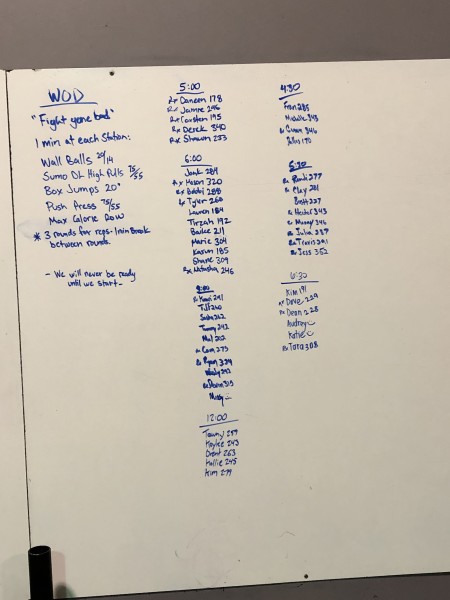 WOD
"Fight gone bad"
1 min at each Station:
Wall Balls 20/14
Sumo DL High Pulls 75/55
Box Jumps 20"
Push Press 75/55
Max Calorie Row
* 3 rounds for reps. 1 min Break
between rounds.
- We will never be ready
until we start -
5:00
Rx Daneen 178
Rx Jamie 296
Rx Carsten 195
Rx Derek 340
Rx Shawn 253
6:00
Jank 284
Rx Mason 320
Rx Bobbi 288
Rx Tyler 268
Lauren 184
Tirzah 192
Bailee 211
Marie 304
Karen 185
Shane 309
Rx Natasha 246
9:00
291
Tiff 260
242
Tammy 242
Mel 212
Rx Cam 273
Rx Ryan 324
Wendy 292
Rx 315
Missy
12:00
Tammy 259
Kaylee 243
Brent 263
Hollie 245
Kim 279
4:30
Fran 285
Michelle 343
Rx 346
John 170
5:30
Rx 277
Rx Clay 281
Brett 237
Rx Hector 343
Rx Manny 346
Rx Julia 287
Rx Travis 291
Rx Jess 352
6:30
Kim 191
Rx Dave 229
Rx Dean 228
Audrey
Katie
Rx Tara 308